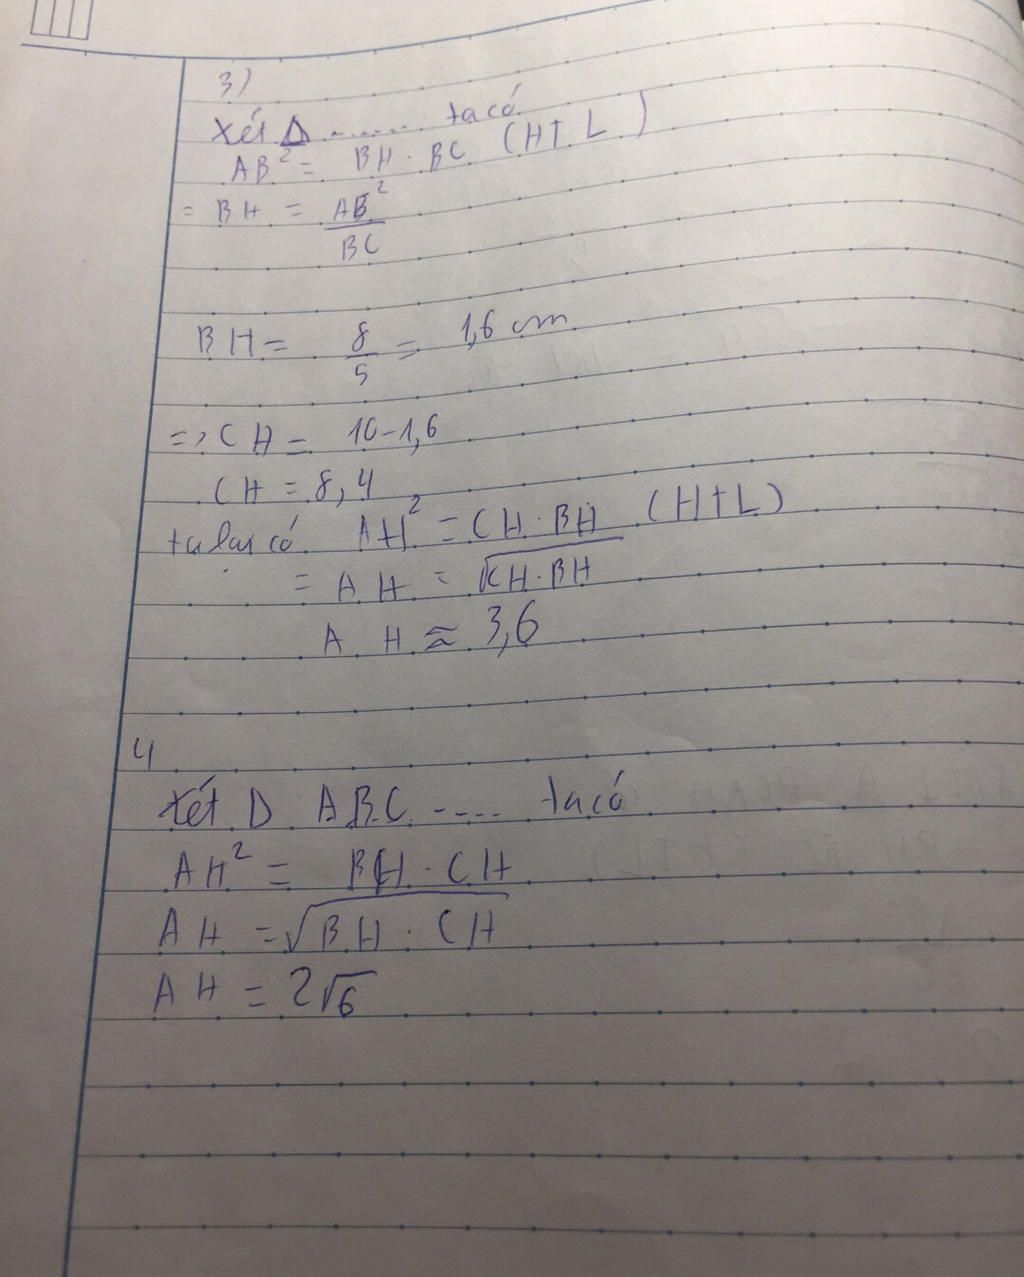 3)
Xét Δ ........ ta có
AB² = BH . BC (HTL)
= BH = AB²
BC
BH = 8/5 = 1,6 cm
=> CH = 10-1,6
CH = 8,4
ta lại có AH² = CH . BH (HTL)
= AH = √CH.BH
AH ≈ 3,6
4
Xét D ABC .... ta có
AH² = BH . CH
AH = √BH . CH
AH = 2√6